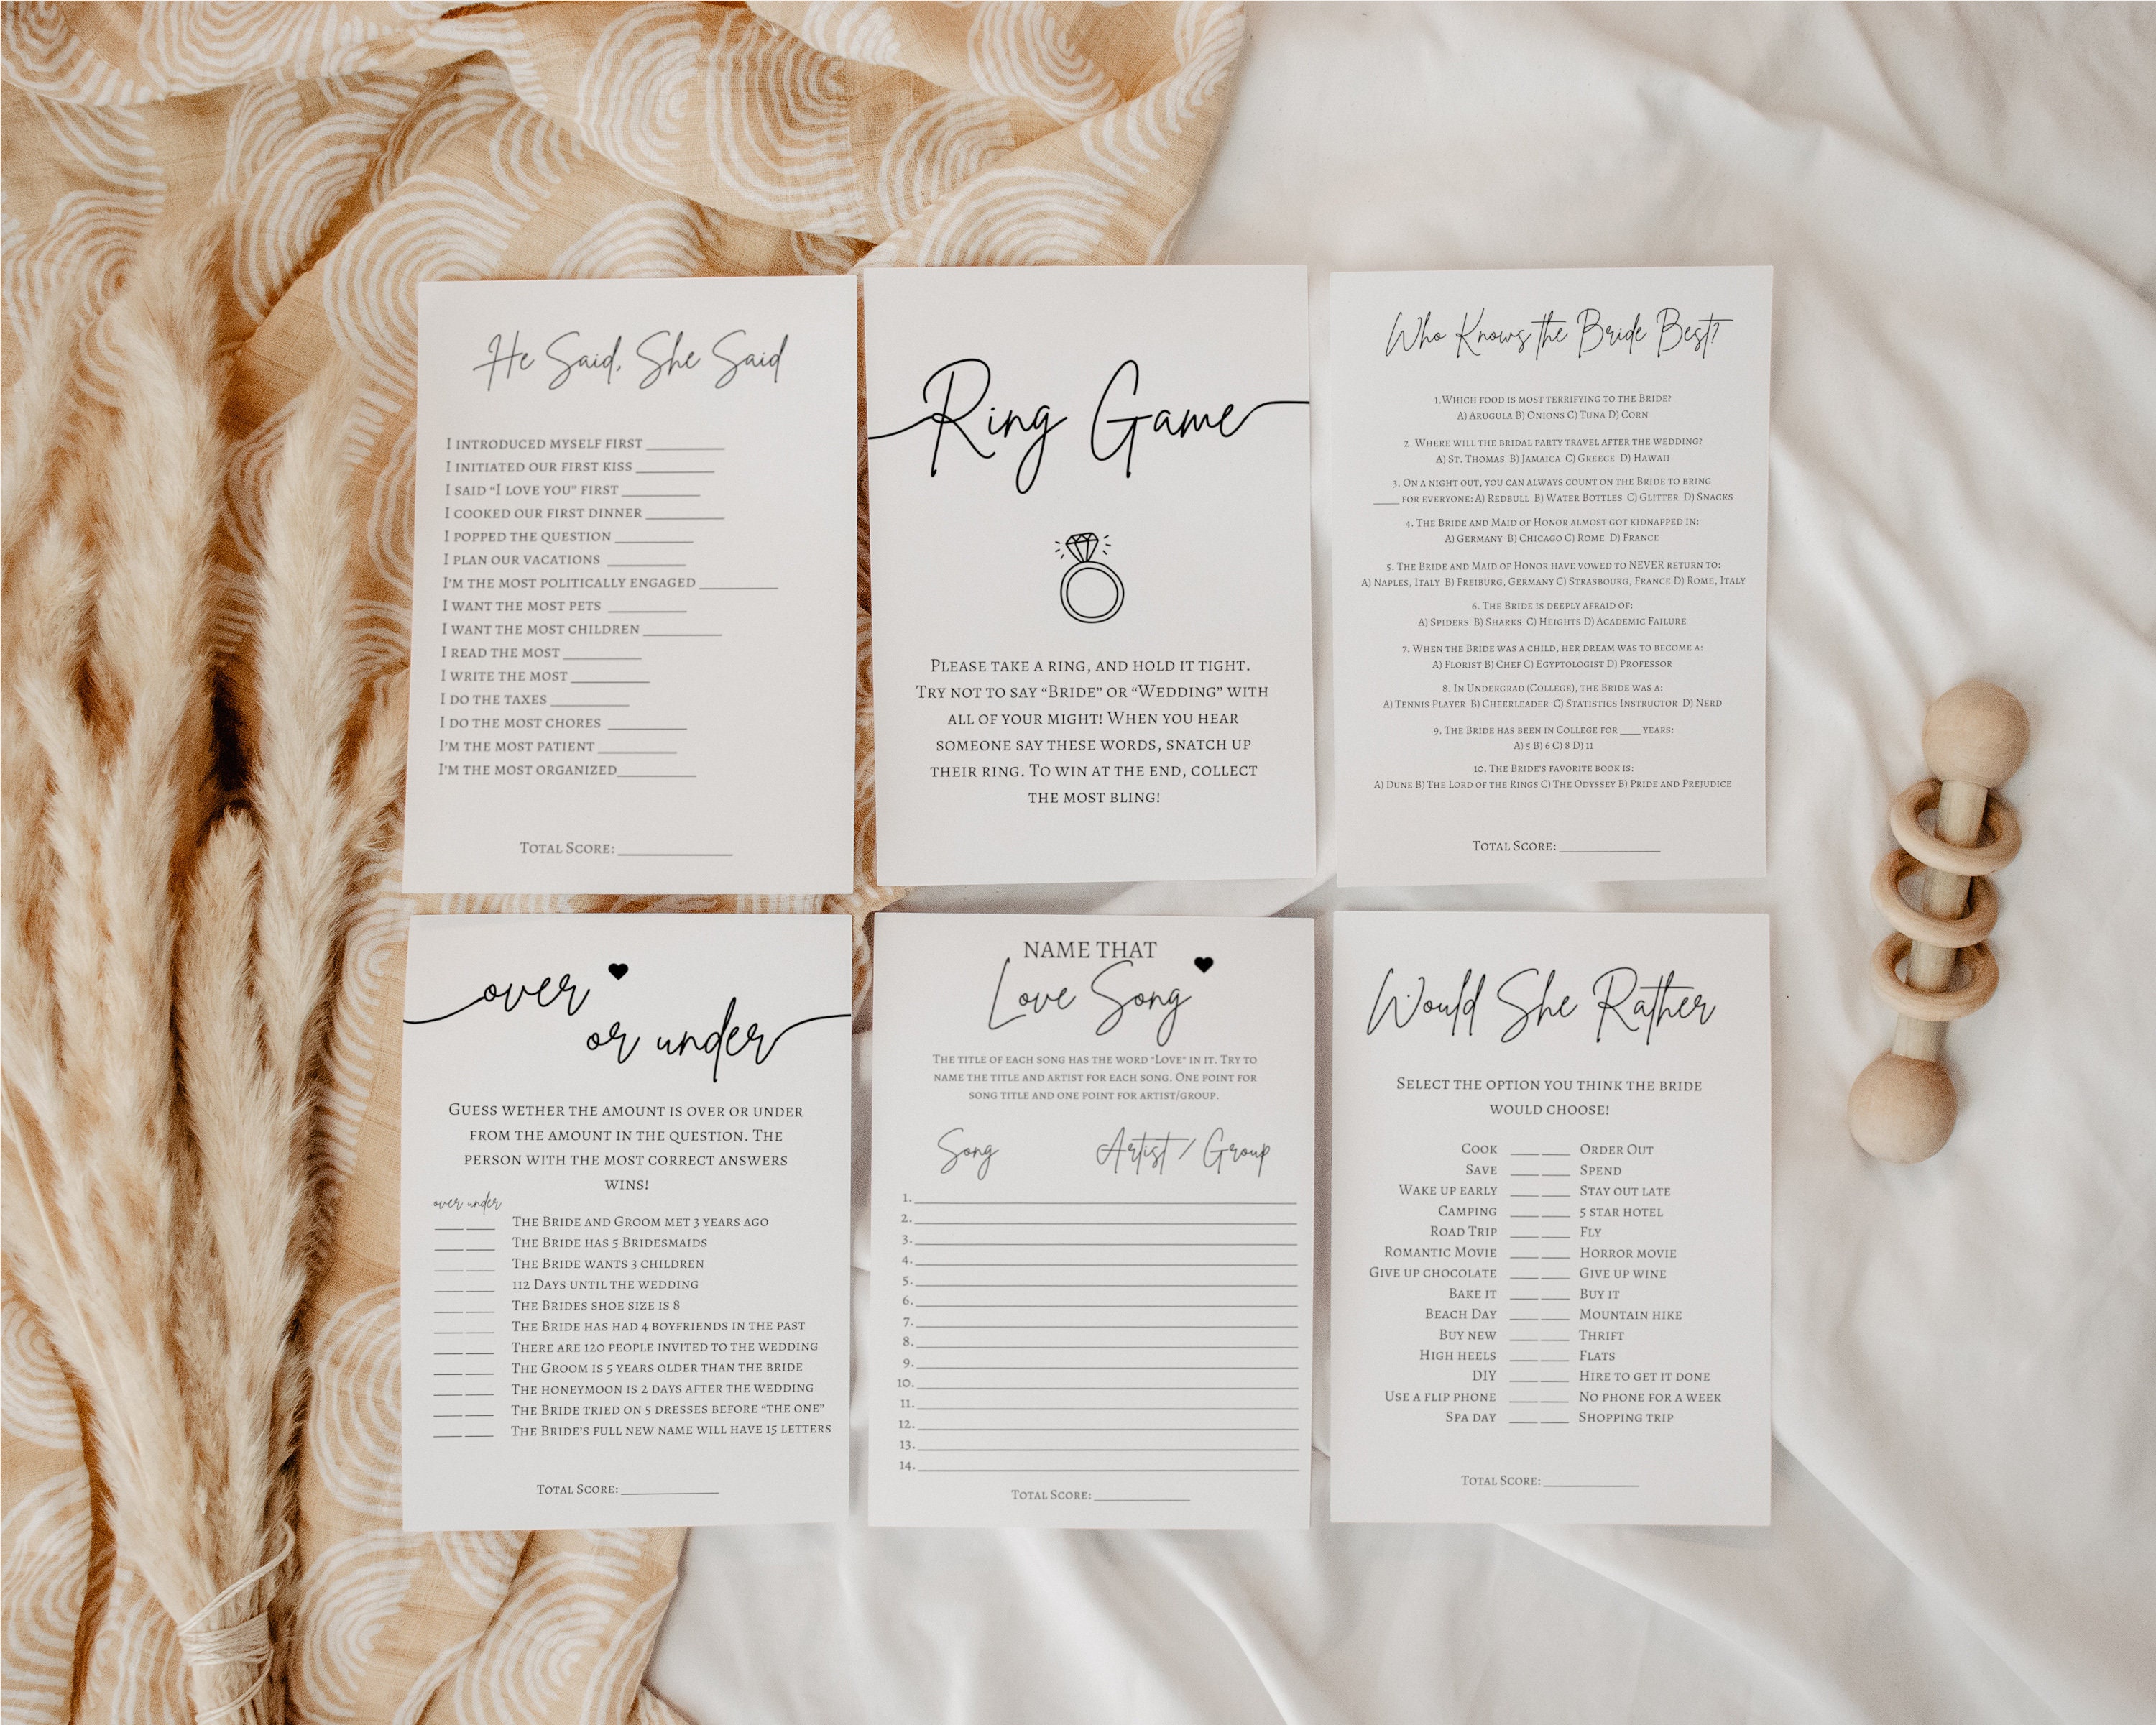 He Said, She Said
I introduced myself first ____________
I initiated our first kiss ____________
I said “I love you” first ____________
I cooked our first dinner ____________
I popped the question ____________
I plan our vacations ____________
I’m the most politically engaged ____________
I want the most pets ____________
I want the most children ____________
I read the most ____________
I write the most ____________
I do the taxes ____________
I do the most chores ____________
I’m the most patient ____________
I’m the most organized____________
Total Score: ________________
Ring Game
Please take a ring, and hold it tight.
Try not to say “Bride” or “Wedding” with
all of your might! When you hear
someone say these words, snatch up
their ring. To win at the end, collect
the most bling!
Who Knows the Bride Best?
1.Which food is most terrifying to the Bride?
A) Arugula B) Onions C) Tuna D) Corn
2. Where will the bridal party travel after the wedding?
A) St. Thomas B) Jamaica C) Greece D) Hawaii
3. On a night out, you can always count on the Bride to bring
____ for everyone: A) Redbull B) Water Bottles C) Glitter D) Snacks
4. The Bride and Maid of Honor almost got kidnapped in:
A) Germany B) Chicago C) Rome D) France
5. The Bride and Maid of Honor have vowed to NEVER return to:
A) Naples, Italy B) Freiburg, Germany C) Strasbourg, France D) Rome, Italy
6. The Bride is deeply afraid of:
A) Spiders B) Sharks C) Heights D) Academic Failure
7. When the Bride was a child, her dream was to become a:
A) Florist B) Chef C) Egyptologist D) Professor
8. In Undergrad (College), the Bride was a:
A) Tennis Player B) Cheerleader C) Statistics Instructor D) Nerd
9. The Bride has been in College for ____ years:
A) 5 B) 6 C) 8 D) 11
10. The Bride’s favorite book is:
A) Dune B) The Lord of the Rings C) The Odyssey B) Pride and Prejudice
Total Score: ________________
over
or under
Guess wether the amount is over or under
from the amount in the question. The
person with the most correct answers
wins!
over under
____ ____ The Bride and Groom met 3 years ago
____ ____ The Bride has 5 Bridesmaids
____ ____ The Bride wants 3 children
____ ____ 112 Days until the wedding
____ ____ The Brides shoe size is 8
____ ____ The Bride has had 4 boyfriends in the past
____ ____ There are 120 people invited to the wedding
____ ____ The Groom is 5 years older than the bride
____ ____ The honeymoon is 2 days after the wedding
____ ____ The Bride tried on 5 dresses before “the one”
____ ____ The Bride’s full new name will have 15 letters
Total Score: ________________
NAME THAT
Love Song
The title of each song has the word "Love" in it. Try to
name the title and artist for each song. One point for
song title and one point for artist/group.
Song Artist / Group
1.
2.
3.
4.
5.
6.
7.
8.
9.
10.
11.
12.
13.
14.
Total Score: ________________
Would She Rather
Select the option you think the bride
would choose!
Cook ____ ____ order out
Save ____ ____ spend
Wake up early ____ ____ stay out late
Camping ____ ____ 5 star hotel
Road Trip ____ ____ Fly
Romantic Movie ____ ____ Horror movie
Give up chocolate ____ ____ Give up wine
Bake it ____ ____ Buy it
Beach Day ____ ____ Mountain hike
Buy new ____ ____ Thrift
High heels ____ ____ Flats
DIY ____ ____ Hire to get it done
Use a flip phone ____ ____ No phone for a week
Spa day ____ ____ Shopping trip
Total Score: ________________